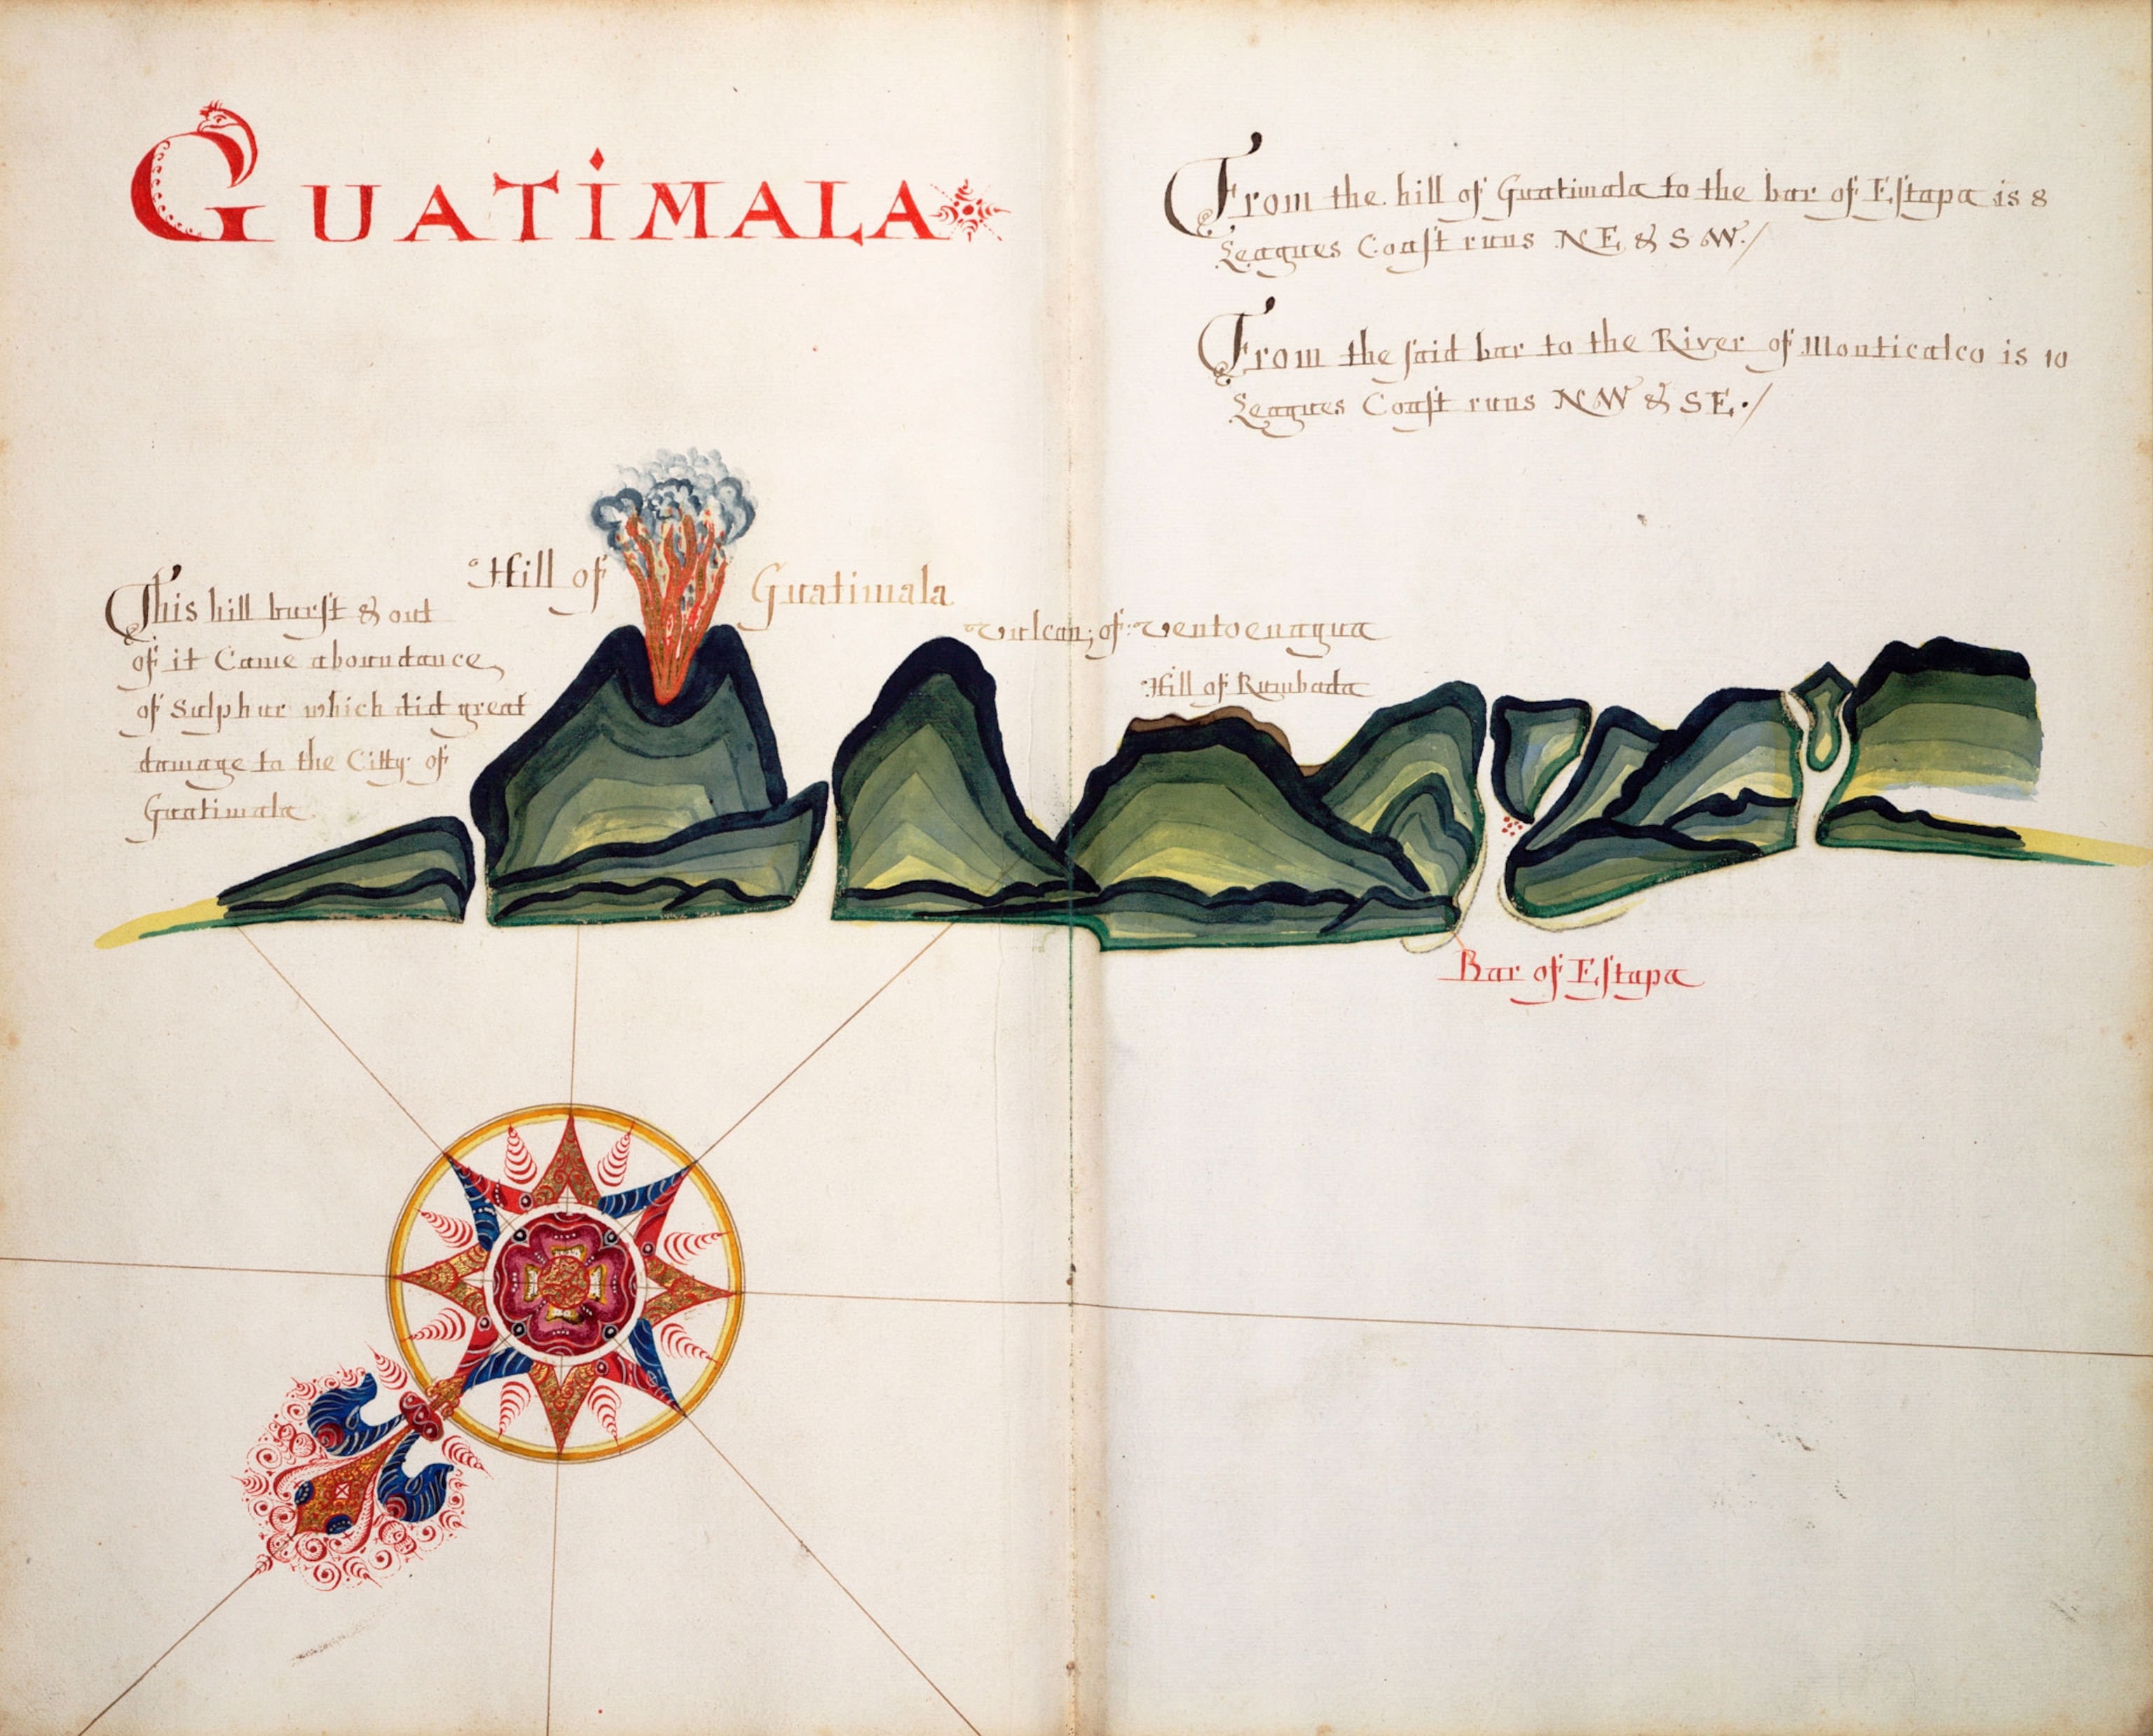 GUATIMALA
From the hill of Guatimala to the bar of Eſtapa is 8
Leagues Coaſt runs NE & SW./
From the ſaid bar to the River of Monticalco is 10
Leagues Coaſt runs NW & SE./
Hill of Guatimala
This hill burſt & out
of it Came aboundance
of Sulphur which did great
damage to the Citty of
Guatimala
Vulcan of Ventoenagua
Hill of Rumbada
Bar of Eſtapa